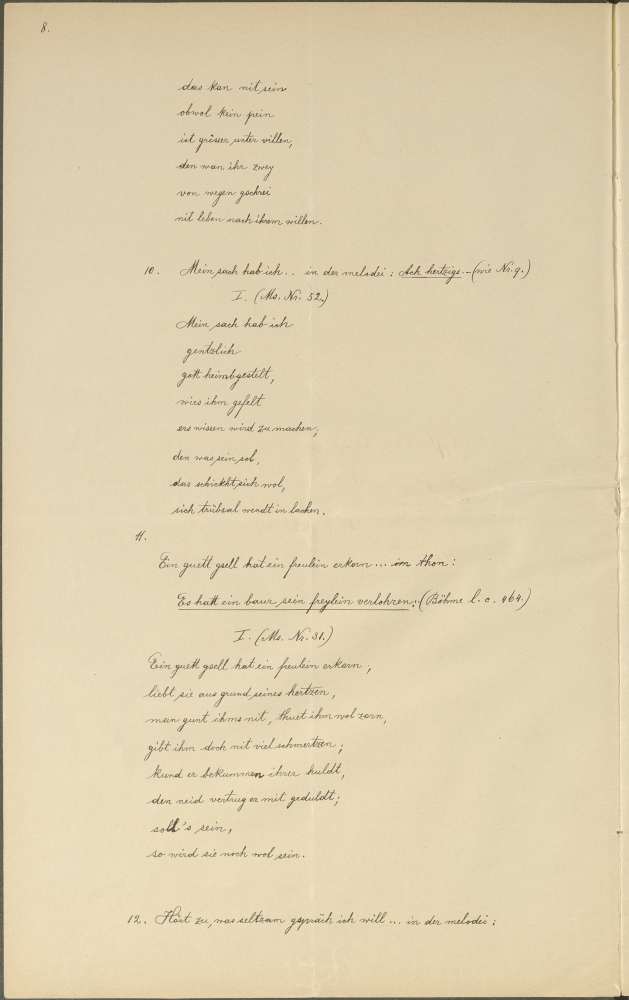 8.
das kan nit sein
obwol kein pein
ist grösser unter villen,
den wan ihr zwey
von wegen gschrei
nit leben nach ihrem willen.
10. Mein sach hab ich .. in der melodei: Ach hertzigs .. (wie Nr. 9.)
I. (Ms. Nr. 52.)
Mein sach hab ich
gentzlich
gott heimbgestelt,
wies ihm gefelt
ers wissen wird zu machen,
den was sein sol,
das schickht sich wol,
sich trübsal wendt in lachen.
11.
Ein guett gsell hat ein freulein erkorn ... im thon:
Es hatt ein baur sein freylein verlohren: (Böhme l. c. 464.)
I. (Ms. Nr. 31.)
Ein guett gsell hat ein freulein erkorn,
liebt sie aus grund seines hertzen,
man gunt ihms nit, thuet ihm wol zorn,
gibt ihm doch nit viel schmertzen;
kund er bekummen ihrer huldt,
den neid vertrug er mit geduldt;
soll's sein,
so wird sie noch wol sein.
12. Hört zu, was seltzam gspräch ich will ... in der melodei: